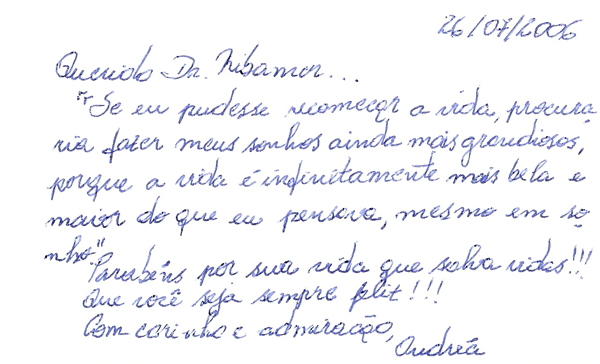 26/07/2006
Querido Dr. Ribamar...
"Se eu pudesse recomeçar a vida, procura
ria fazer meus sonhos ainda mais grandiosos,
porque a vida é infinitamente mais bela e
maior do que eu pensava, mesmo em so
nho"
Parabéns por sua vida que salva vidas!!!
Que você seja sempre feliz!!!
Com carinho e admiração,
Andréa